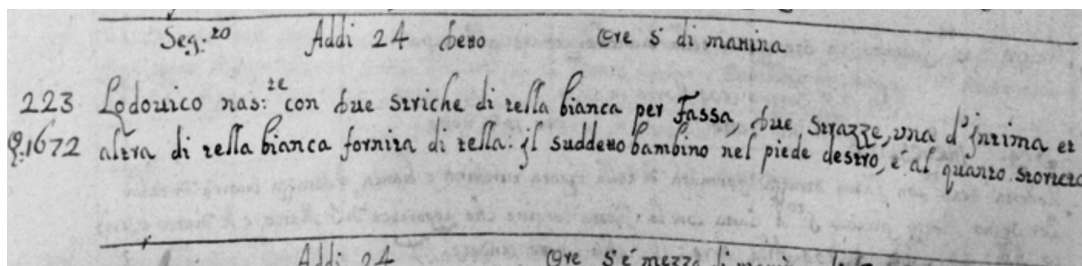 Seg.to Addi 24 detto Ore 5 di matina
223 Lodovico nas:te con due striche di tella bianca per fassa, due strazze, una d'intima et
1672 altra di tella bianca fornita di tella: il suddetto bambino nel piede destro, è al quanto stortetto
Addi 24 Ore 5 e mezza di